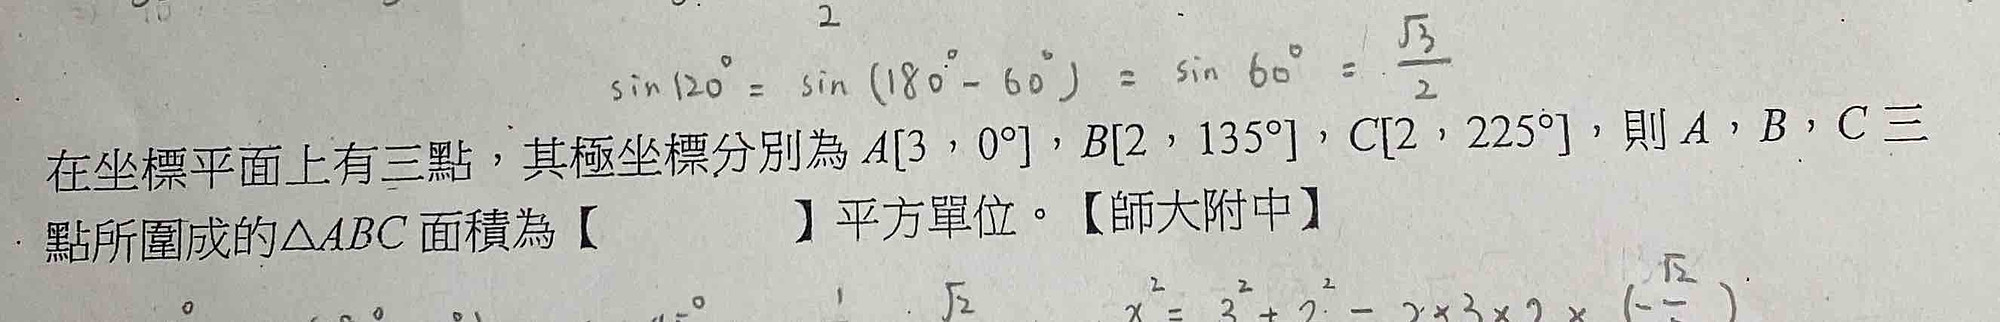 2
sin 120° = sin (180° - 60°) = sin 60° = √3/2
在坐標平面上有三點，其極坐標分別為 A[3，0°]，B[2，135°]，C[2，225°]，則 A，B，C 三
點所圍成的△ABC 面積為【 】平方單位。【師大附中】
√2 x² = 3² + 2² - 2×3×2 × (-√2